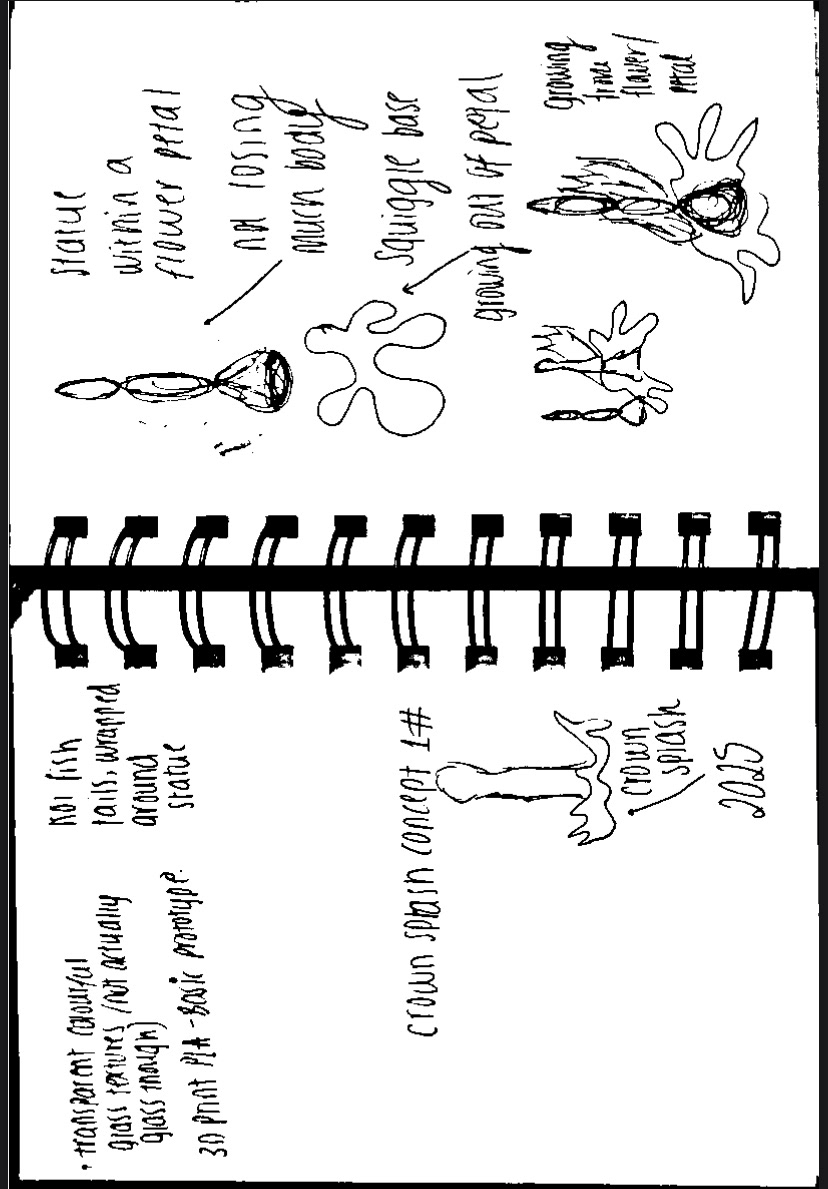 • transparent colourful
glass textures (not actually
glass though)
3D print PLA - Basic prototype.
Koi fish
tails, wrapped
around
statue
crown splash concept 1#
crown
splash
2025
Statue
within a
flower petal
not losing
much body
squiggle base
growing out of petal
growing
from
flower/
petal